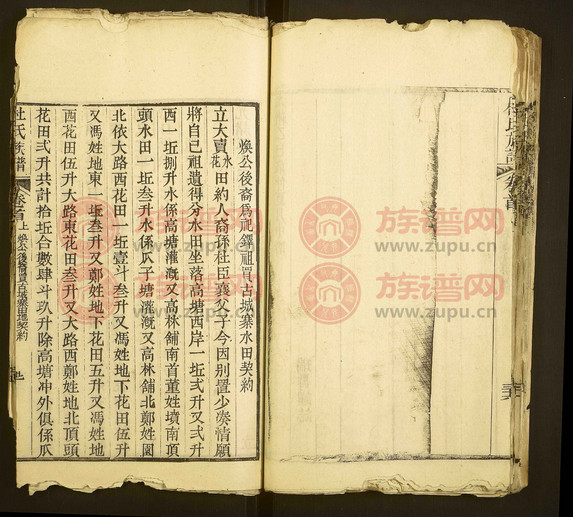 煥公後裔爲祝鐸祖置古城寨水田契約
立大賣水花田約人裔係杜臣襄父子今因别置少湊情願
將自已祖遺得分水田坐落高塘西岸一坵弍升又弍升
西一坵捌升水係高塘灌溉又高林舖南首董姓墳南頂
頭水田一坵叁升水係瓜子塘灌溉又高林舖北鄭姓園
北依大路西花田一坵壹斗叁升又馮姓地下花田伍升
又馮姓地東一坵叁升又鄭姓地下花田五升又馮姓地
西花田伍升大路東花田叁升又大路西鄭姓地北頂頭
花田弍升共計拾坵合數肆斗玖升除高塘冲外俱係瓜
杜氏族譜 卷首 上
族谱网
www.zupu.cn
族谱网
www.zupu.cn
族谱网
www.zupu.cn
族谱网
www.zupu.cn